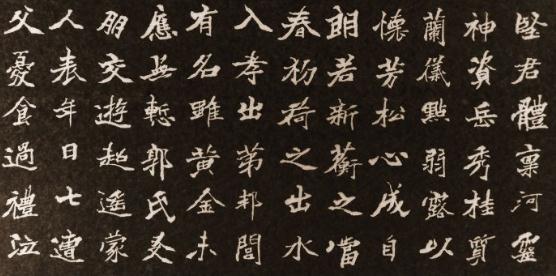 堅君體稟河靈
神資岳秀桂質
蘭儀點弱露以
懷芳松心成自
朗若新蘅之當
春初荷之出水
入孝出第邦閭
有名雖黃金未
應無慙郭氏友
朋交遊起遙蒙
人表年日七遭
父憂食過禮泣